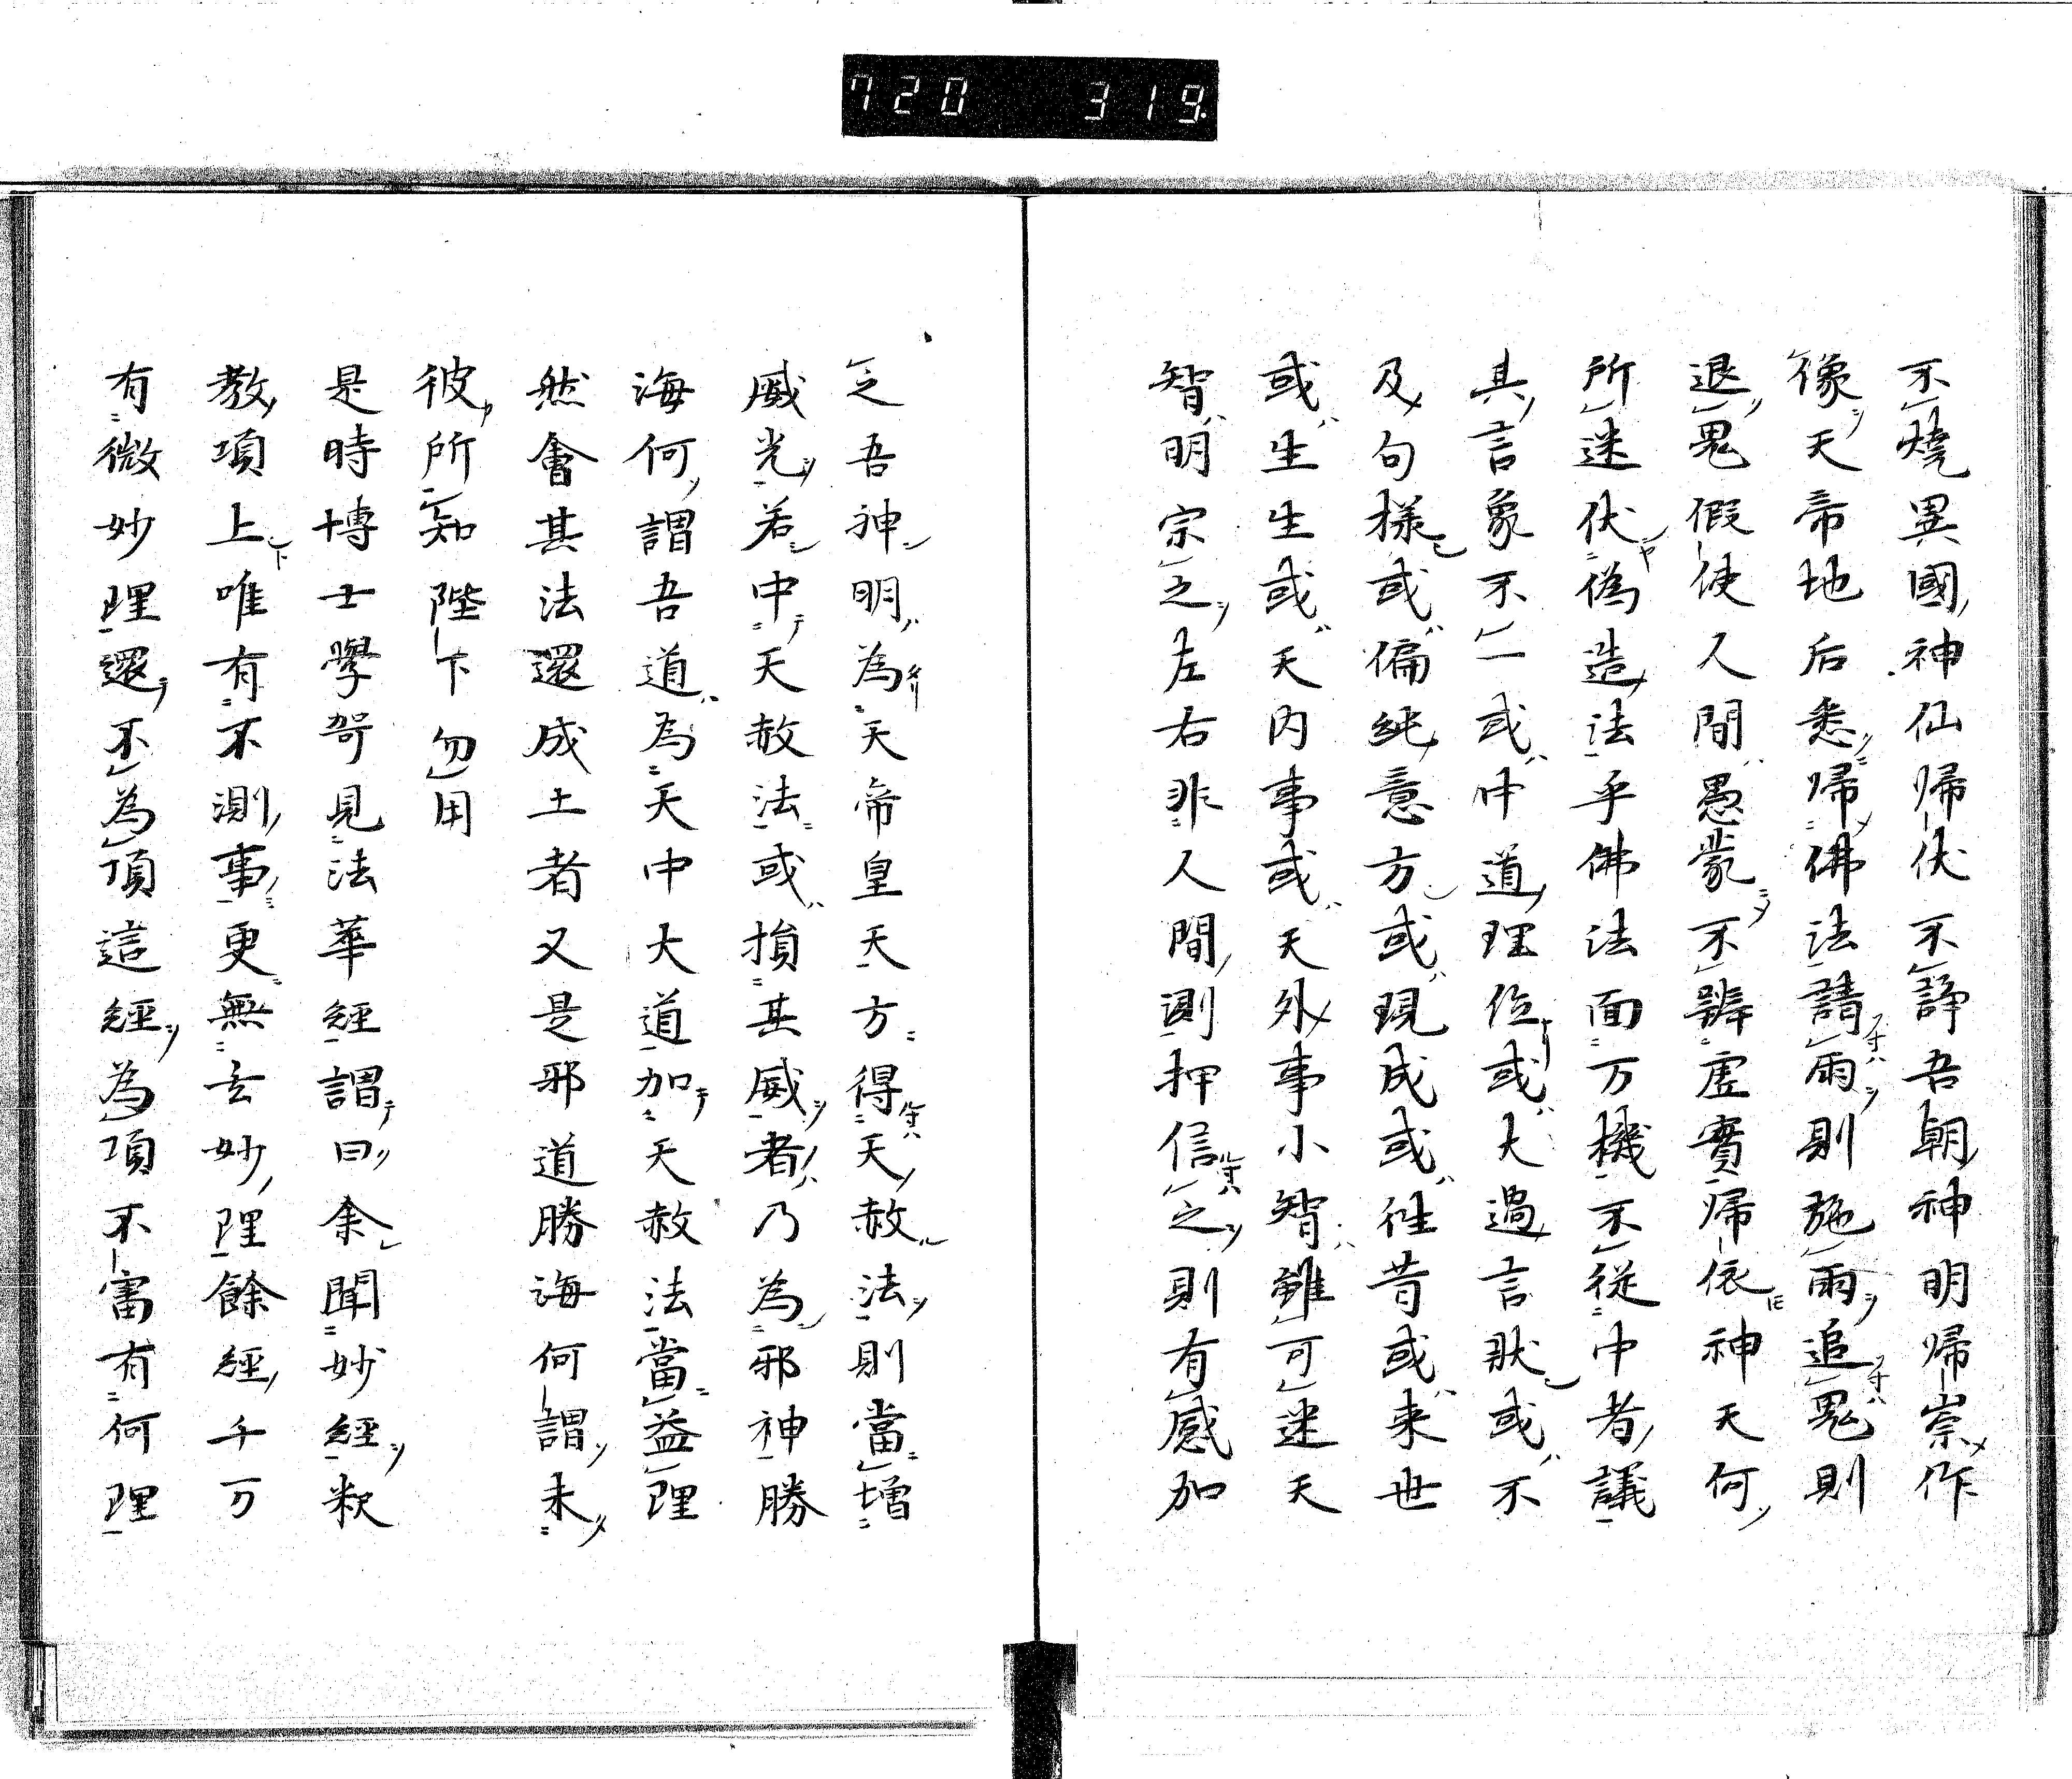 720 319
不燒異國神仙帰伏不諍吾朝神明帰崇作
像天帝地后悉帰佛法請雨則施雨追鬼則
退鬼假使人間愚蒙不辨虚實帰依神天何
所迷伏偽造法乎佛法面万機不從中者議
其言象不一或中道理位或大過言状或不
及句様或偏純意方或現成或往昔或来世
或生生或天内事或天外事小智雖可迷天
智明宗之左右非人間測押信之則有感加
之吾神明為天帝皇天方得天赦法則當増
威光若中天赦法或損其威者乃為邪神勝
海何謂吾道為天中大道加天赦法當益理
然會其法還成土者又是邪道勝海何謂未
彼所知陛下勿用
是時博士學哿見法華經謂曰余聞妙經釈
教項上唯有不測事更無玄妙理餘經千万
有微妙理還不為頂這經為項不審有何理